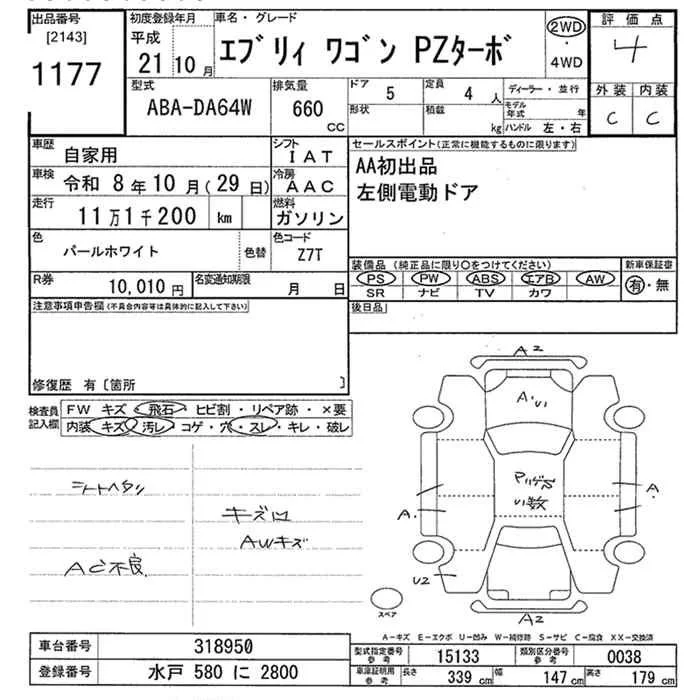 出品番号
[2143]
1177
初度登録年月
平成
21 10 月
車名・グレード
エブリィ ワゴン PZターボ
2WD
・
4WD
評価点
4
外装 内装
C C
型式
ABA-DA64W
排気量
660
CC
ドア
5
定員
4 人
形状
積載
kg
ディーラー・並行
モデル年式 年
ハンドル 左・右
車歴
自家用
シフト
IAT
車検
令和 8年10月(29日)
冷房
AAC
走行
11万1千200 km
燃料
ガソリン
色
パールホワイト
色替
色コード
Z7T
R券
10,010円
名変通知期限
月 日
セールスポイント(正常に機能するものに限ります)
AA初出品
左側電動ドア
装備品 (純正品に限り○をつけてください)
PS PW ABS エアB AW
SR ナビ TV カワ
新車保証書
有・無
後日品
注意事項申告欄(不具合内容等は具体的に記入して下さい)
修復歴 有〔箇所 〕
検査員
記入欄
FW キズ・飛石・ヒビ割・リペア跡・×要
内装 キズ・汚レ・コゲ・穴・スレ・キレ・破レ
シートヘタリ
キズ凹
AWキズ
AC不良
A2
A. U1
U数
A.
A.
U2
A2
スペア
A−キズ E−エクボ U−凹み W−補修跡 S−サビ C−腐食 XX−交換済
車台番号
318950
登録番号
水戸 580 に 2800
型式指定番号
参考
15133
類別区分番号
参考
0038
車庫証明用
参考
長さ
339 cm
幅
147 cm
高さ
179 cm